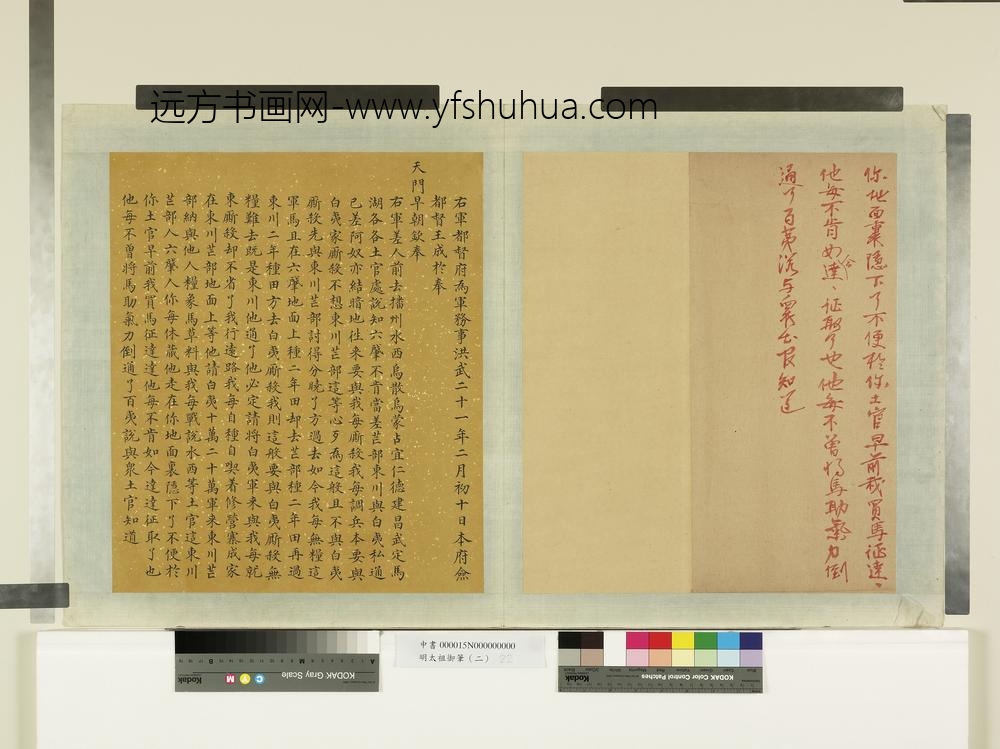 远方书画网-www.yfshuhua.com
你地面裏隱下了不便於你土官早前我買馬征達〻
他每不肯如今達〻征取了也他每不曾將馬助氣力倒
通了百夷說与衆土官知道
右軍都督府為軍務事洪武二十一年二月初十日本府僉
都督王成於奉
天門早朝欽奉
右軍差人前去播州水西烏散烏蒙占宜仁德建昌武定馬
湖各各土官處說知六肇不肯當差芒部東川與白夷私通
已差阿奴亦結暗地往來要與我每廝殺我每調兵本要與
白夷家廝殺不想東川芒部這等心歹為這般且不與白夷
廝殺先與東川芒部討得分曉了方過去如今我每無糧這
軍馬且在六肇地面上種二年田却去芒部種二年田再過
東川二年種田方去白夷廝殺我則這般要與白夷廝殺無
糧難去既是東川他通了他必定請將白夷軍來與我每就
東廝殺却不省了我行遠路我每自種自喫着修營寨成家
在東川芒部地面上等他請白夷十萬二十萬軍來東川芒
部納與他人糧象馬草料與我每戰說水西等土官這東川
芒部人六肇人你每休藏他走在你地面裏隱下了不便於
你土官早前我買馬征達達他每不肯如今達達征取了也
他每不曾將馬助氣力倒通了百夷說與衆土官知道
中書 000015N000000000
明太祖御筆（二） 22
Kodak
KODAK Gray Scale
C Y M
KODAK Color Control Patches